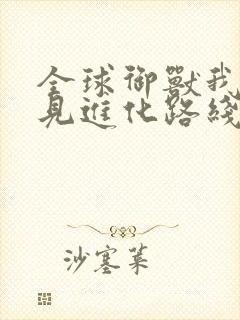 全球御獸我
見進化路綫
沙塞菜